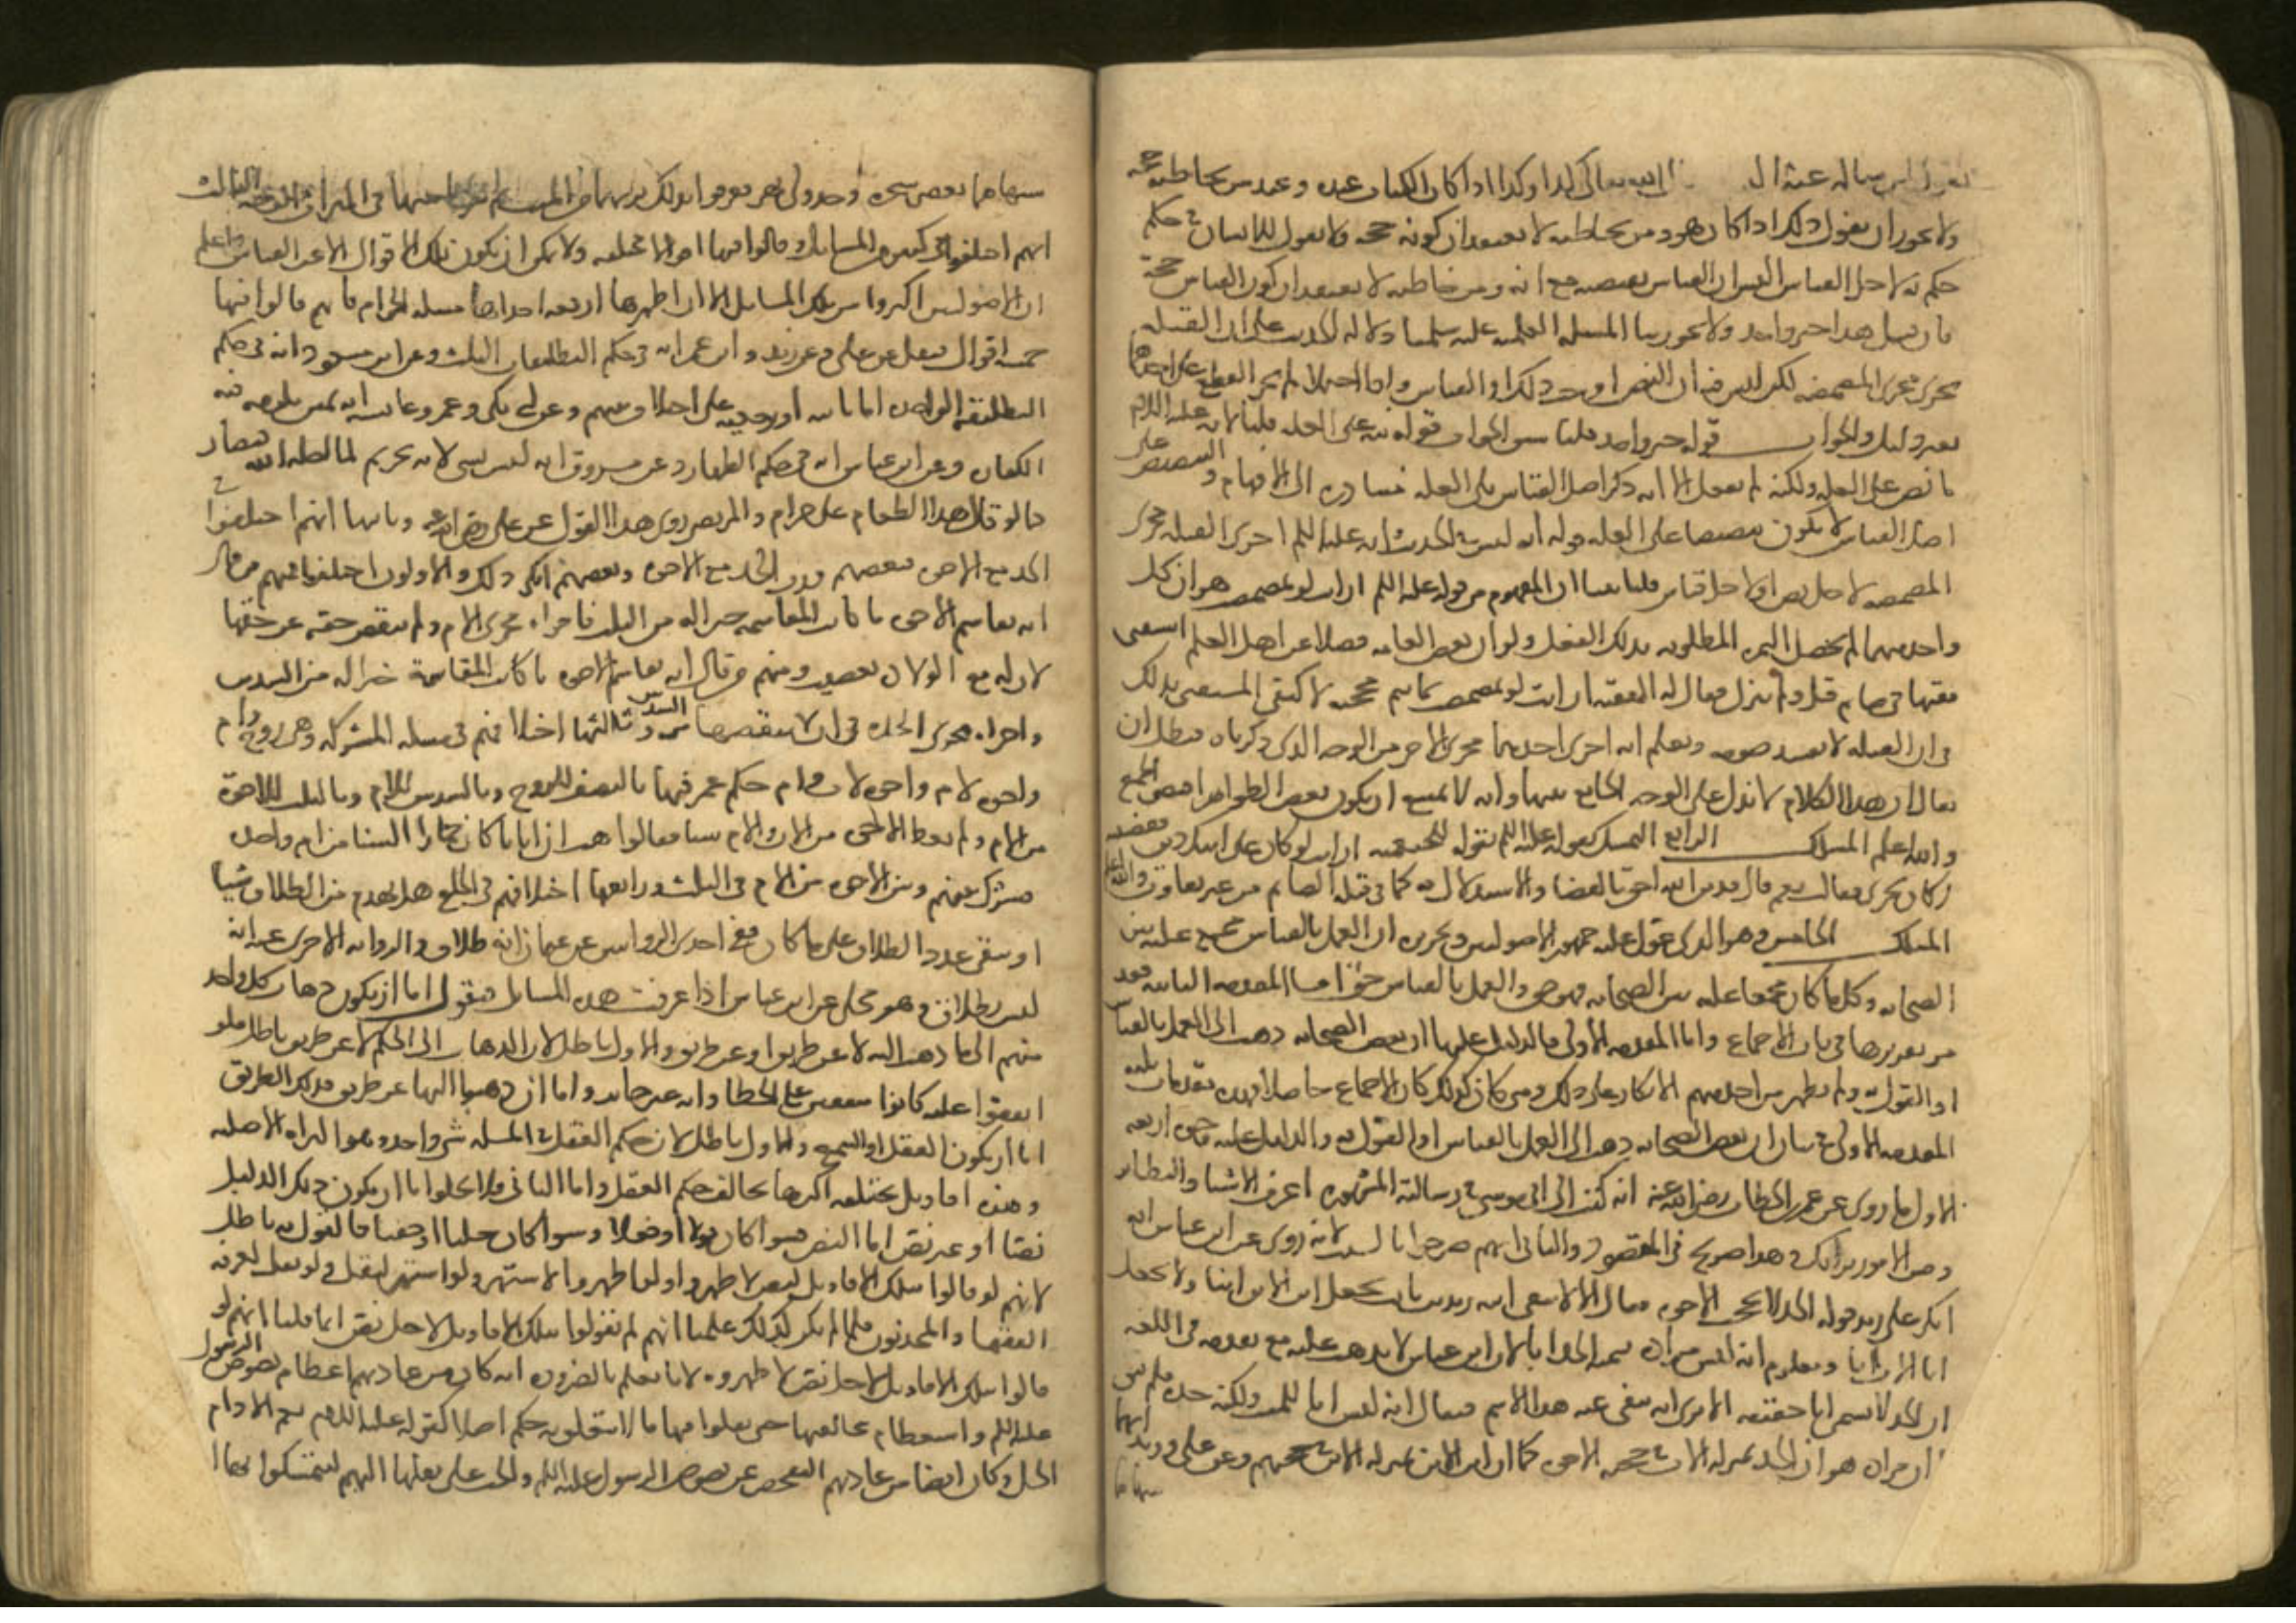 يقول لمن ساله عنه ان الله تعالى كذا وكذا اذا كان الكتاب عنده وعند من يخاطبه حجة
ولا يجوز ان يقول ذلك اذا كان هو ومن يخاطبه لا يعتقدان كونه حجة ولا يقول للانسان في حكم
حكم به لاجل القياس اليس ان القياس يقتضيه مع انه ومن خاطبه لا يعتقدان كون القياس حجة
فان قيل هذا خبر واحد ولا يجوز بنا المسلة العلمية عليه سلمنا دلالة الحديث على ان القبلة
تجري مجرى المضمضة لكن ليس فيه ان النص اوجب ذلك او القياس واذا احتملا لم يجز القطع على احدهما
بغير دليل والجواب قوله خبر واحد قلنا سبق الجواب قوله نبه على العلة قلنا لانه عليه السلام
ما نص على العلة ولكنه لم يفعل الا انه ذكر اصل القياس على العلة فيبادر الى الافهام والتنصيص على
اصل القياس لا يكون تنصيصا على العلة قوله انه ليس في الحديث انه عليه السلم اجرى القبلة مجرى
المضمضة لاجل نص او لاجل قياس قلنا بينا ان المفهوم من قوله عليه السلم ارايت لو تمضمضت هو ان كل
واحد منهما لم يحصل الثمرة المطلوبة بذلك الفعل ولو ان بعض العامة فضلا عن اهل العلم استفتى
فقيها في صايم قبل ولم ينزل فقال له الفقيه ارايت لو تمضمضت بماء ثم مججته لاكتفى المستفتي بذلك
في ان القبلة لا تفسد صومه ويعلم انه اجرى احدهما مجرى الاخر من الوجه الذي ذكرناه فبطل ان
يقال ان هذا الكلام لا يدل على الوجه الجامع بينهما وانه لا يمتنع ان يكون بعض الظواهر اقتضى الجمع
والله اعلم المسلك الرابع التمسك بقوله عليه السلم بقوله للخثعمية ارايت لو كان على ابيك دين فقضيته
اكان يجزي فقالت نعم قال فدين الله احق بالقضا والاستدلال به كما في قبلة الصايم من غير تفاوت والله اعلم
المسلك الخامس وهو الذي عول عليه جمهور الاصوليين وتحريره ان العمل بالقياس مجمع عليه بين
الصحابة وكل ما كان مجمعا عليه بين الصحابة فهو حق والعمل بالقياس حق اما المقدمة الثانية فقد
مر تقريرها في باب الاجماع واما المقدمة الاولى فالدليل عليها ان بعض الصحابة ذهب الى العمل بالقياس
او القول به ولم يظهر من احد منهم الانكار على ذلك ومتى كان كذلك كان الاجماع حاصلا فهذه مقدمات ثلثة
المقدمة الاولى في بيان ان بعض الصحابة ذهب الى العمل بالقياس او القول به والدليل عليه وجوه اربعة
الاول ما روي عن عمر بن الخطاب رضي الله عنه انه كتب الى ابي موسى في رسالته المشهورة اعرف الاشباه والنظاير
وقس الامور برايك وهذا صريح في المقصود والثاني انهم صرحوا بالتشبيه لانه روي عن ابن عباس انه
انكر على زيد قوله الجد لا يحجب الاخوة فقال الا لا يتقي الله زيد بن ثابت يجعل ابن الابن ابنا ولا يجعل
اب الاب ابا ومعلوم انه ليس مراده تسمية الجد ابا لان ابن عباس لا يذهب عليه مع تقدمه في اللغة
ان الجد لا يسمى ابا حقيقة الا ترى انه ينفى عنه هذا الاسم فيقال انه ليس ابا للميت ولكنه جده فلم يبق الا
ان مراده هو ان الجد بمنزلة الاب في حجب الاخوة كما ان ابن الابن بمنزلة الابن في حجبهم وعن علي وزيد انهما
شبها
شبهاهما بغصني شجرة وجدولي نهر فعرفوا بذلك قربهما من الميت ثم شركا بينهما في الميراث الوجه الثالث
انهم اختلفوا في كثير من المسايل وقالوا فيها اقوالا مختلفة ولا يمكن ان يكون تلك الاقوال الا عن القياس واعلم
ان الاصوليين اكثروا من تلك المسايل الا ان اظهرها اربعة احداها مسلة الحرام فانهم قالوا فيها
خمسة اقوال فنقل عن علي وعن زيد وابن عمر انه في حكم التطليقات الثلث وعن ابن مسعود انه في حكم
التطليقة الواحدة اما باينة او رجعية على اختلاف بينهم وعن ابي بكر وعمر وعايشة انه يمين يلزم فيه
الكفارة وعن ابن عباس انه في حكم الظهار وعن مسروق انه ليس بشي لانه تحريم لما احله الله فصار
كما لو قال هذا الطعام علي حرام والمرتضى روى هذا القول عن علي رضي الله عنه وثانيها انهم اختلفوا في
الجد مع الاخوة فبعضهم ورث الجد مع الاخوة وبعضهم انكر ذلك والاولون اختلفوا فمنهم من قال
انه يقاسم الاخوة ما كانت المقاسمة خيرا له من الثلث فاجراه مجرى الام ولم ينقص حقه عن حقها
لان له مع الولادة تعصيبا ومنهم من قال انه يقاسم الاخوة ما كانت المقاسمة خيرا له من السدس
واجراه مجرى الجدة في ان لا ينقص حقها من السدس وثالثها اختلافهم في مسلة المشركة وهي زوج وام
واخوة لام واخوة لاب وام حكم عمر فيها بالنصف للزوج وبالسدس للام وبالثلث للاخوة
من الام ولم يعط الاخوة من الاب والام شيا فقالوا هب ان ابانا كان حمارا السنا من ام واحدة
فشرك بينهم وبين الاخوة من الام في الثلث ورابعها اختلافهم في الخلع هل يهدم من الطلاق شيا
او يبقى عدد الطلاق على ما كان ففي احدى الروايتين عن عثمان انه طلاق والرواية الاخرى عنه انه
ليس بطلاق وهو محكي عن ابن عباس اذا عرفت هذه المسايل فنقول اما ان يكون ذهاب كل واحد
منهم الى ما ذهب اليه لا عن طريق او عن طريق والاول باطل لان الذهاب الى الحكم لا عن طريق باطل فلو
اتفقوا عليه كانوا متفقين على الخطا وانه غير جايز واما ان ذهبوا اليها عن طريق فذلك الطريق
اما ان يكون العقل او السمع والاول باطل لان حكم العقل في المسلة شي واحد وهو البراة الاصلية
وهذه اقاويل مختلفة اكثرها يخالف حكم العقل واما الثاني فلا يخلوا اما ان يكون ذلك الدليل
نصا او غير نص اما النص فسوا كان قولا او فعلا وسوا كان جليا او خفيا فالقول به باطل
لانهم لو قالوا بتلك الاقاويل لنص لاظهروه ولو اظهروه لاشتهر ولو اشتهر لنقل ولو نقل لعرفه
الفقها والمحدثون فلما لم يكن كذلك علمنا انهم لم يقولوا بتلك الاقاويل لاجل نص انما قلنا انهم لو
قالوا بتلك الاقاويل لاجل نص لاظهروه لانا نعلم بالضرورة انه كان من عادتهم اعظام نصوص الرسول
عليه السلم واستعظام مخالفتها حتى نقلوا منها ما لا يتعلق به حكم اصلا كقوله عليه السلام نعم الادام
الخل وكان ايضا من عادتهم التفحص عن نصوص الرسول عليه السلم والحث على نقلها اليهم ليتمسكوا بها